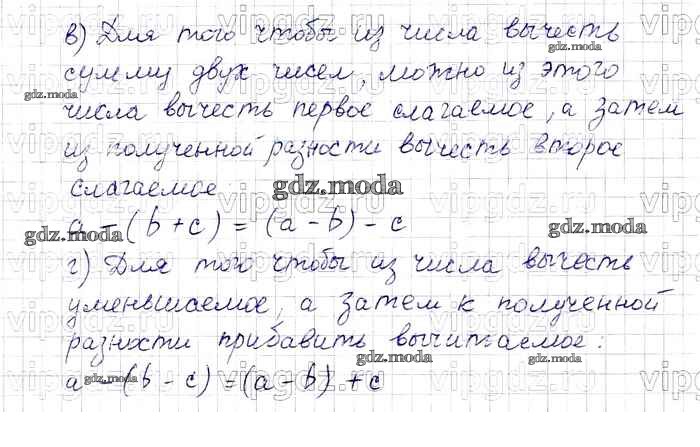 в) Для того чтобы из числа вычесть
сумму двух чисел, можно из этого
числа вычесть первое слагаемое, а затем
из полученной разности вычесть второе
слагаемое
gdz.moda
a - (b + c) = (a - b) - c
г) Для того чтобы из числа вычесть
уменьшаемое, а затем к полученной
разности прибавить вычитаемое:
a - (b - c) = (a - b) + c